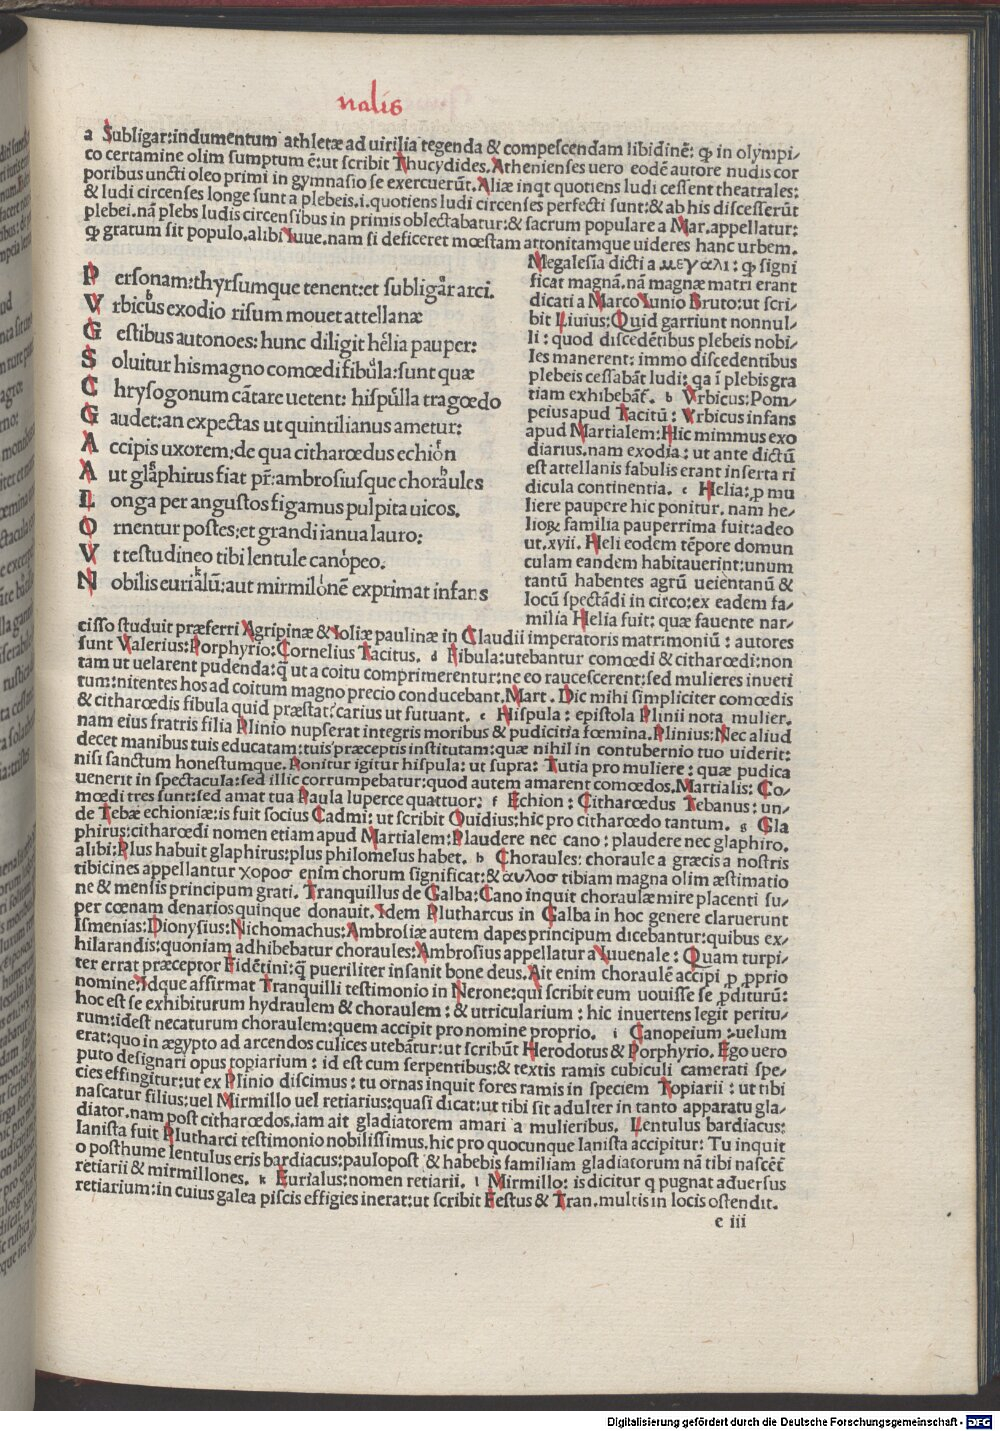 nalis
a Subligar:indumentum athletæ ad uirilia tegenda & compescendam libidinē: ꝙ in olympi/
co certamine olim sumptum ē:ut scribit Thucydides. Athenienses uero eodē autore nudis cor
poribus uncti oleo primi in gymnasio se exercuerūt. Aliæ inqt quotiens ludi cessent theatrales:
& ludi circenses longe sunt a plebeis.i.quotiens ludi circenses perfecti sunt:& ab his discesserūt
plebei.nā plebs ludis circensibus in primis oblectabatur:& sacrum populare a Mar.appellatur:
ꝙ gratum sit populo.alibi Iuue.nam si deficeret mœstam attonitamque uideres hanc urbem.
P ersonam:thyrsumque tenent:et subligar arci.
V rbicus exodio risum mouet attellanæ
G estibus autonoes:hunc diligit helia pauper:
S oluitur his magno comœdi fibula:sunt quæ
C hrysogonum cātare uetent: hispulla tragœdo
G audet:an expectas ut quintilianus ametur:
A ccipis uxorem:de qua citharœdus echion
A ut glaphirus fiat pr̄:ambrosiusque choraules
L onga per angustos figamus pulpita uicos.
O rnentur postes:et grandi ianua lauro:
V t testudineo tibi lentule canopeo.
N obilis eurialū:aut mirmilonē exprimat infans
Megalesia dicti a μεγαλι: ꝙ signi
ficat magnā.nā magnæ matri erant
dicati a Marco Iunio Bruto:ut scri/
bit Liuius:Quid garriunt nonnul/
li: quod discedētibus plebeis nobi/
les manerent: immo discedentibus
plebeis cessabāt ludi: qa ī plebis gra
tiam exhibebāt̄. b Vrbicus:Pom/
peius apud Tacitū: Vrbicus infans
apud Martialem:Hic mimmus exo
diarius.nam exodia: ut ante dictū
est attellanis fabulis erant inserta ri
dicula continentia. c Helia: ꝓ mu
liere paupere hic ponitur. nam he/
lioꝝ familia pauperrima fuit:adeo
ut.xvii. Heli eodem tēpore domun
culam eandem habitauerint:unum
tantū habentes agrū ueientanū &
locū spectādi in circo:ex eadem fa/
milia Helia fuit: quæ fauente nar/
cisso studuit præferri Agripinæ & Ioliæ paulinæ in Claudii imperatoris matrimoniū: autores
sunt Valerius:Porphyrio:Cornelius Tacitus. d Fibula:utebantur comœdi & citharœdi:non
tam ut uelarent pudenda:q̄ ut a coitu comprimerentur:ne eo raucescerent:sed mulieres inueti
tum:nitentes hos ad coitum magno precio conducebant.Mart. Dic mihi simpliciter comœdis
& citharœdis fibula quid præstat:carius ut futuant. e Hispula: epistola Plinii nota mulier.
nam eius fratris filia Plinio nupserat integris moribus & pudicitia fœmina.Plinius:Nec aliud
decet manibus tuis educatam:tuis præceptis institutam:quæ nihil in contubernio tuo uiderit:
nisi sanctum honestumque. Ponitur igitur hispula: ut supra: Tutia pro muliere: quæ pudica
uenerit in spectacula:sed illic corrumpebatur:quod autem amarent comœdos.Martialis: Co/
mœdi tres sunt:sed amat tua Paula luperce quattuor: f Echion: Citharœdus Tebanus: un/
de Tebæ echioniæ:is fuit socius Cadmi: ut scribit Ouidius:hic pro citharœdo tantum. g Gla
phirus:citharœdi nomen etiam apud Martialem:Plaudere nec cano: plaudere nec glaphiro.
alibi:Plus habuit glaphirus:plus philomelus habet. h Choraules: choraule a græcis a nostris
tibicines appellantur χοροσ enim chorum significat:& αυλοσ tibiam magna olim æstimatio
ne & mensis principum grati. Tranquillus de Galba:Cano inquit choraulæ mire placenti su/
per cœnam denarios quinque donauit.Idem Plutharcus in Galba in hoc genere claruerunt
Ismenias:Dionysius:Nichomachus:Ambrosiæ autem dapes principum dicebantur:quibus ex/
hilarandis:quoniam adhibebatur choraules:Ambrosius appellatur a Iuuenale: Quam turpi/
ter errat præceptor Fidētini:q̄ pueriliter insanit bone deus.Ait enim choraulē accipi ꝓ ꝓprio
nomine:Idque affirmat Tranquilli testimonio in Nerone:qui scribit eum uouisse se ꝓditurū:
hoc est se exhibiturum hydraulem & choraulem: & utricularium: hic inuertens legit peritu/
rum:idest necaturum choraulem:quem accipit pro nomine proprio. i Canopeium:uelum
erat:quo in ægypto ad arcendos culices utebātur:ut scribūt Herodotus & Porphyrio. Ego uero
puto designari opus topiarium: id est cum serpentibus:& textis ramis cubiculi camerati spe/
cies effingitur:ut ex Plinio discimus: tu ornas inquit fores ramis in speciem Topiarii: ut tibi
nascatur filius:uel Mirmillo uel retiarius:quasi dicat:ut tibi sit adulter in tanto apparatu gla/
diator.nam post citharœdos.iam ait gladiatorem amari a mulieribus. Lentulus bardiacus:
lanista fuit Plutharci testimonio nobilissimus.hic pro quocunque lanista accipitur: Tu inquit
o posthume lentulus eris bardiacus:paulopost & habebis familiam gladiatorum nā tibi nascēt̄
retiarii & mirmillones. k Eurialus:nomen retiarii. l Mirmillo: is dicitur q pugnat aduersus
retiarium:in cuius galea piscis effigies inerat:ut scribit Festus & Tran.multis in locis ostendit.
e iii
Digitalisierung gefördert durch die Deutsche Forschungsgemeinschaft - DFG